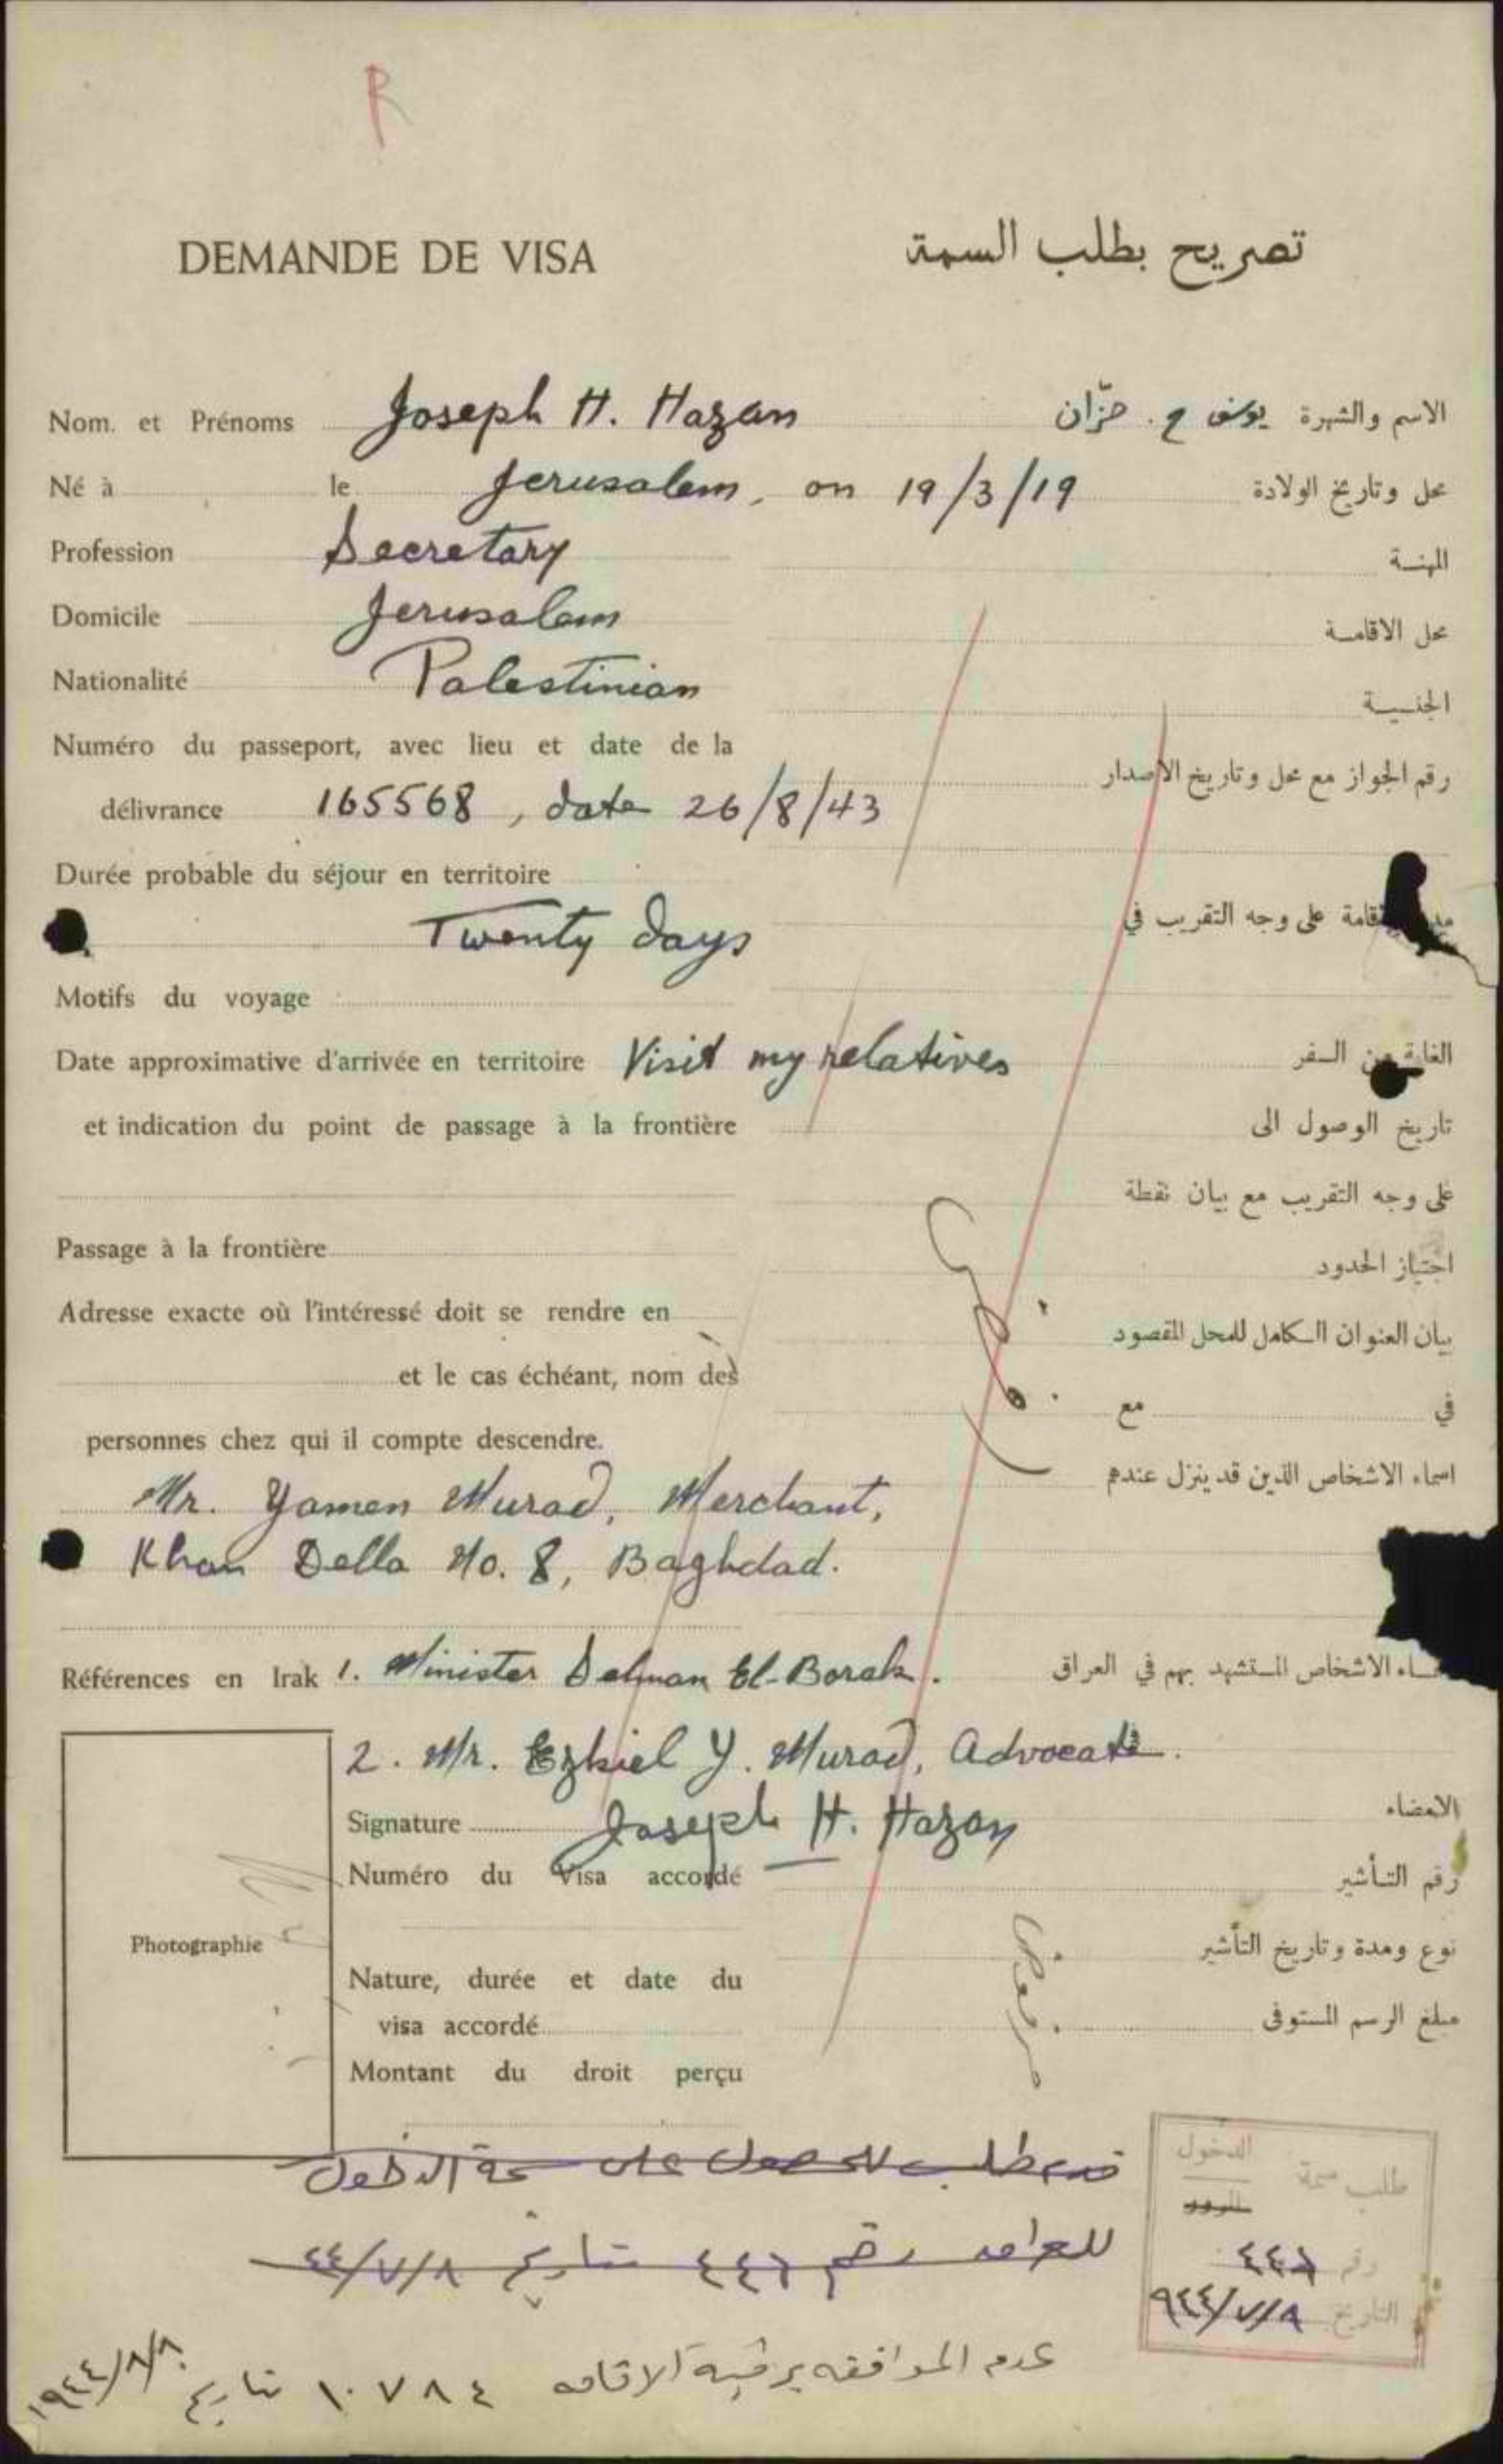 R
DEMANDE DE VISA تصريح بطلب السمة
Nom. et Prénoms Joseph H. Hazan الاسم والشهرة يوسف ح. حزّان
Né à le Jerusalem, on 19/3/19 محل وتاريخ الولادة
Profession Secretary المهنة
Domicile Jerusalem محل الاقامة
Nationalité Palestinian الجنسية
Numéro du passeport, avec lieu et date de la
délivrance 165568, date 26/8/43 رقم الجواز مع محل وتاريخ الاصدار
Durée probable du séjour en territoire
Twenty days قامة على وجه التقريب في
Motifs du voyage
Date approximative d'arrivée en territoire Visit my relatives الغاية من السفر
et indication du point de passage à la frontière تاريخ الوصول الى
على وجه التقريب مع بيان نقطة
Passage à la frontière اجتياز الحدود
Adresse exacte où l'intéressé doit se rendre en بيان العنوان الكامل للمحل المقصود
et le cas échéant, nom des في مع
personnes chez qui il compte descendre. اسماء الاشخاص الذين قد ينزل عندهم
Mr. Yamen Murad, Merchant,
Khan Della No. 8, Baghdad.
Références en Irak 1. Minister Selman El-Borak. اء الاشخاص المستشهد بهم في العراق
2. Mr. Ezkiel Y. Murad, Advocate.
Signature Joseph H. Hazan الامضاء
Numéro du Visa accordé رقم التأشير
Photographie
نوع ومدة وتاريخ التأشير
Nature, durée et date du
visa accordé مبلغ الرسم المستوفى
Montant du droit perçu
مرفوض
قدم طلب للحصول على سمة الدخول
للعراق رقم ٤٤٦ بتاريخ ٤٤/٧/٨
طلب سمة الدخول
المرور
رقم ٤٤٦
التاريخ ٩٤٤/٧/٨
عدم الموافقه برقية الاقامه ١٠٧٨٤ تاريخ ١٩٤٤/٨/٨